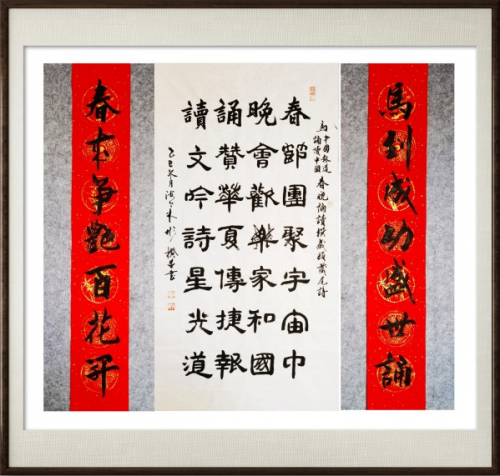 馬到成功盛世誦
为中國報道
誦讀中國春晚誦讀撰藏頭藏尾詩
春節團聚宇宙中
晚會歡樂家和國
誦贊華夏傳捷報
讀文吟詩星光道
乙巳冬月
春來爭艷百花开